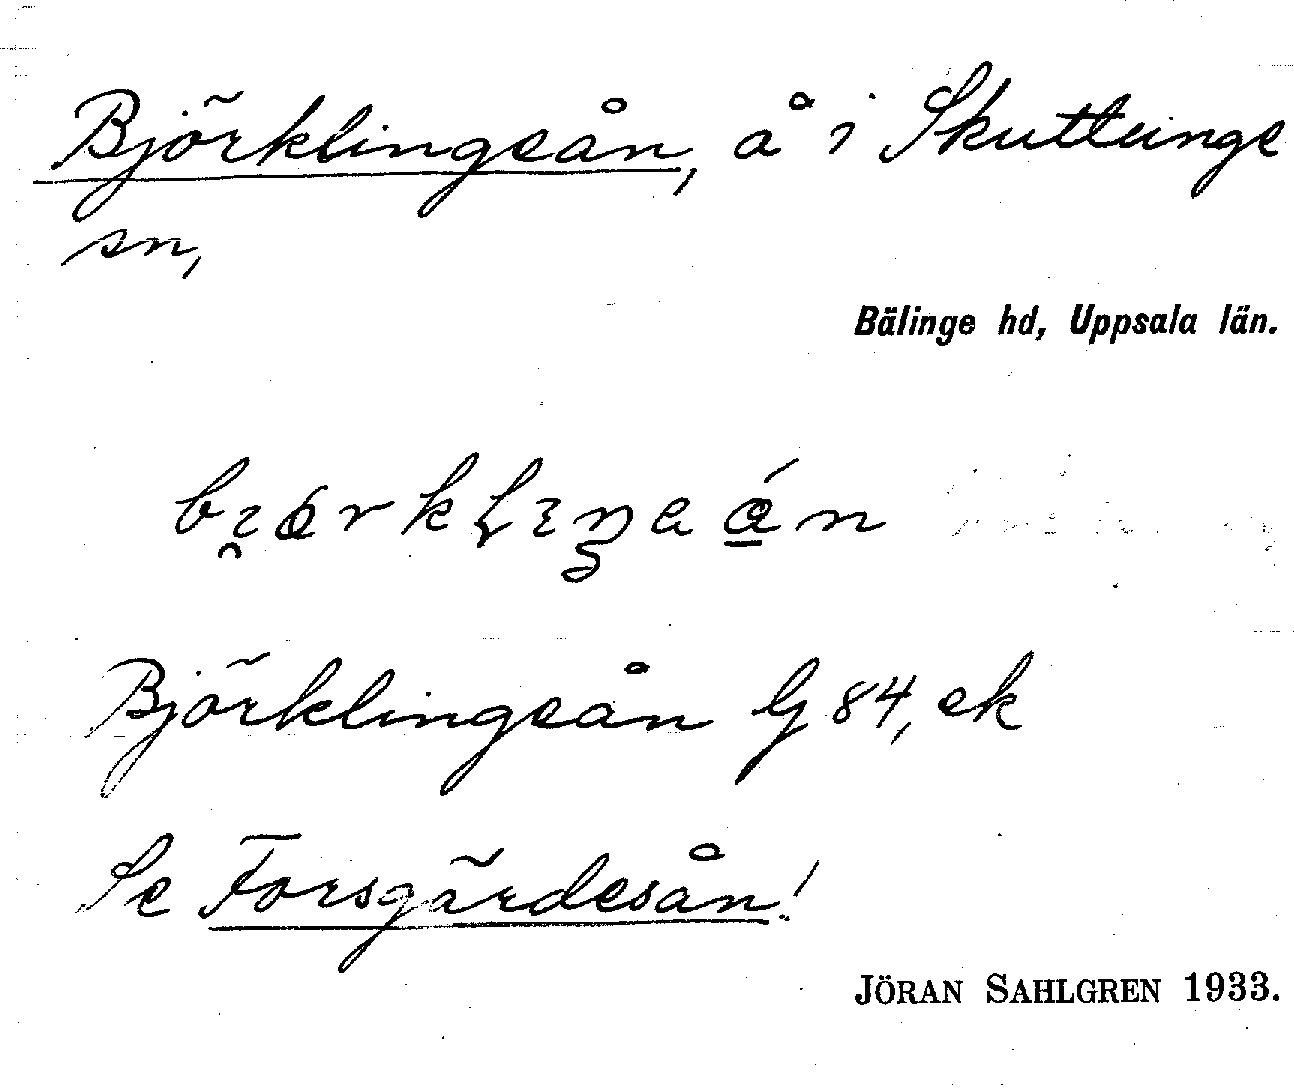 Björklingeån, å i Skuttunge
sn,
Bälinge hd, Uppsala län.
Björklingeån G 84, ek
Se Forsgärdesån!
JÖRAN SAHLGREN 1933.